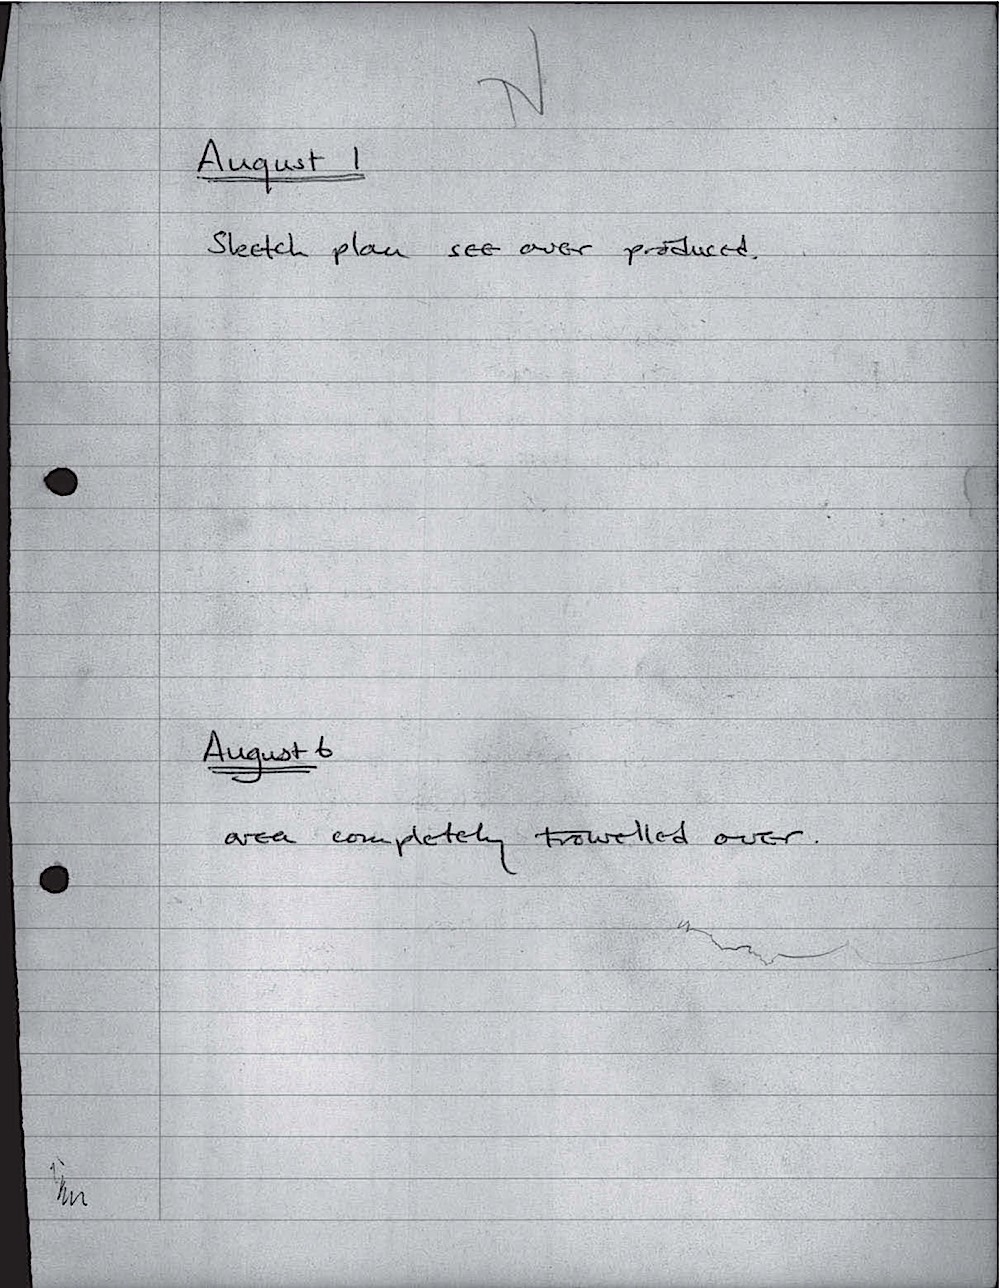 N
August 1
Sketch plan see over produced.
August 6
area completely trowelled over.